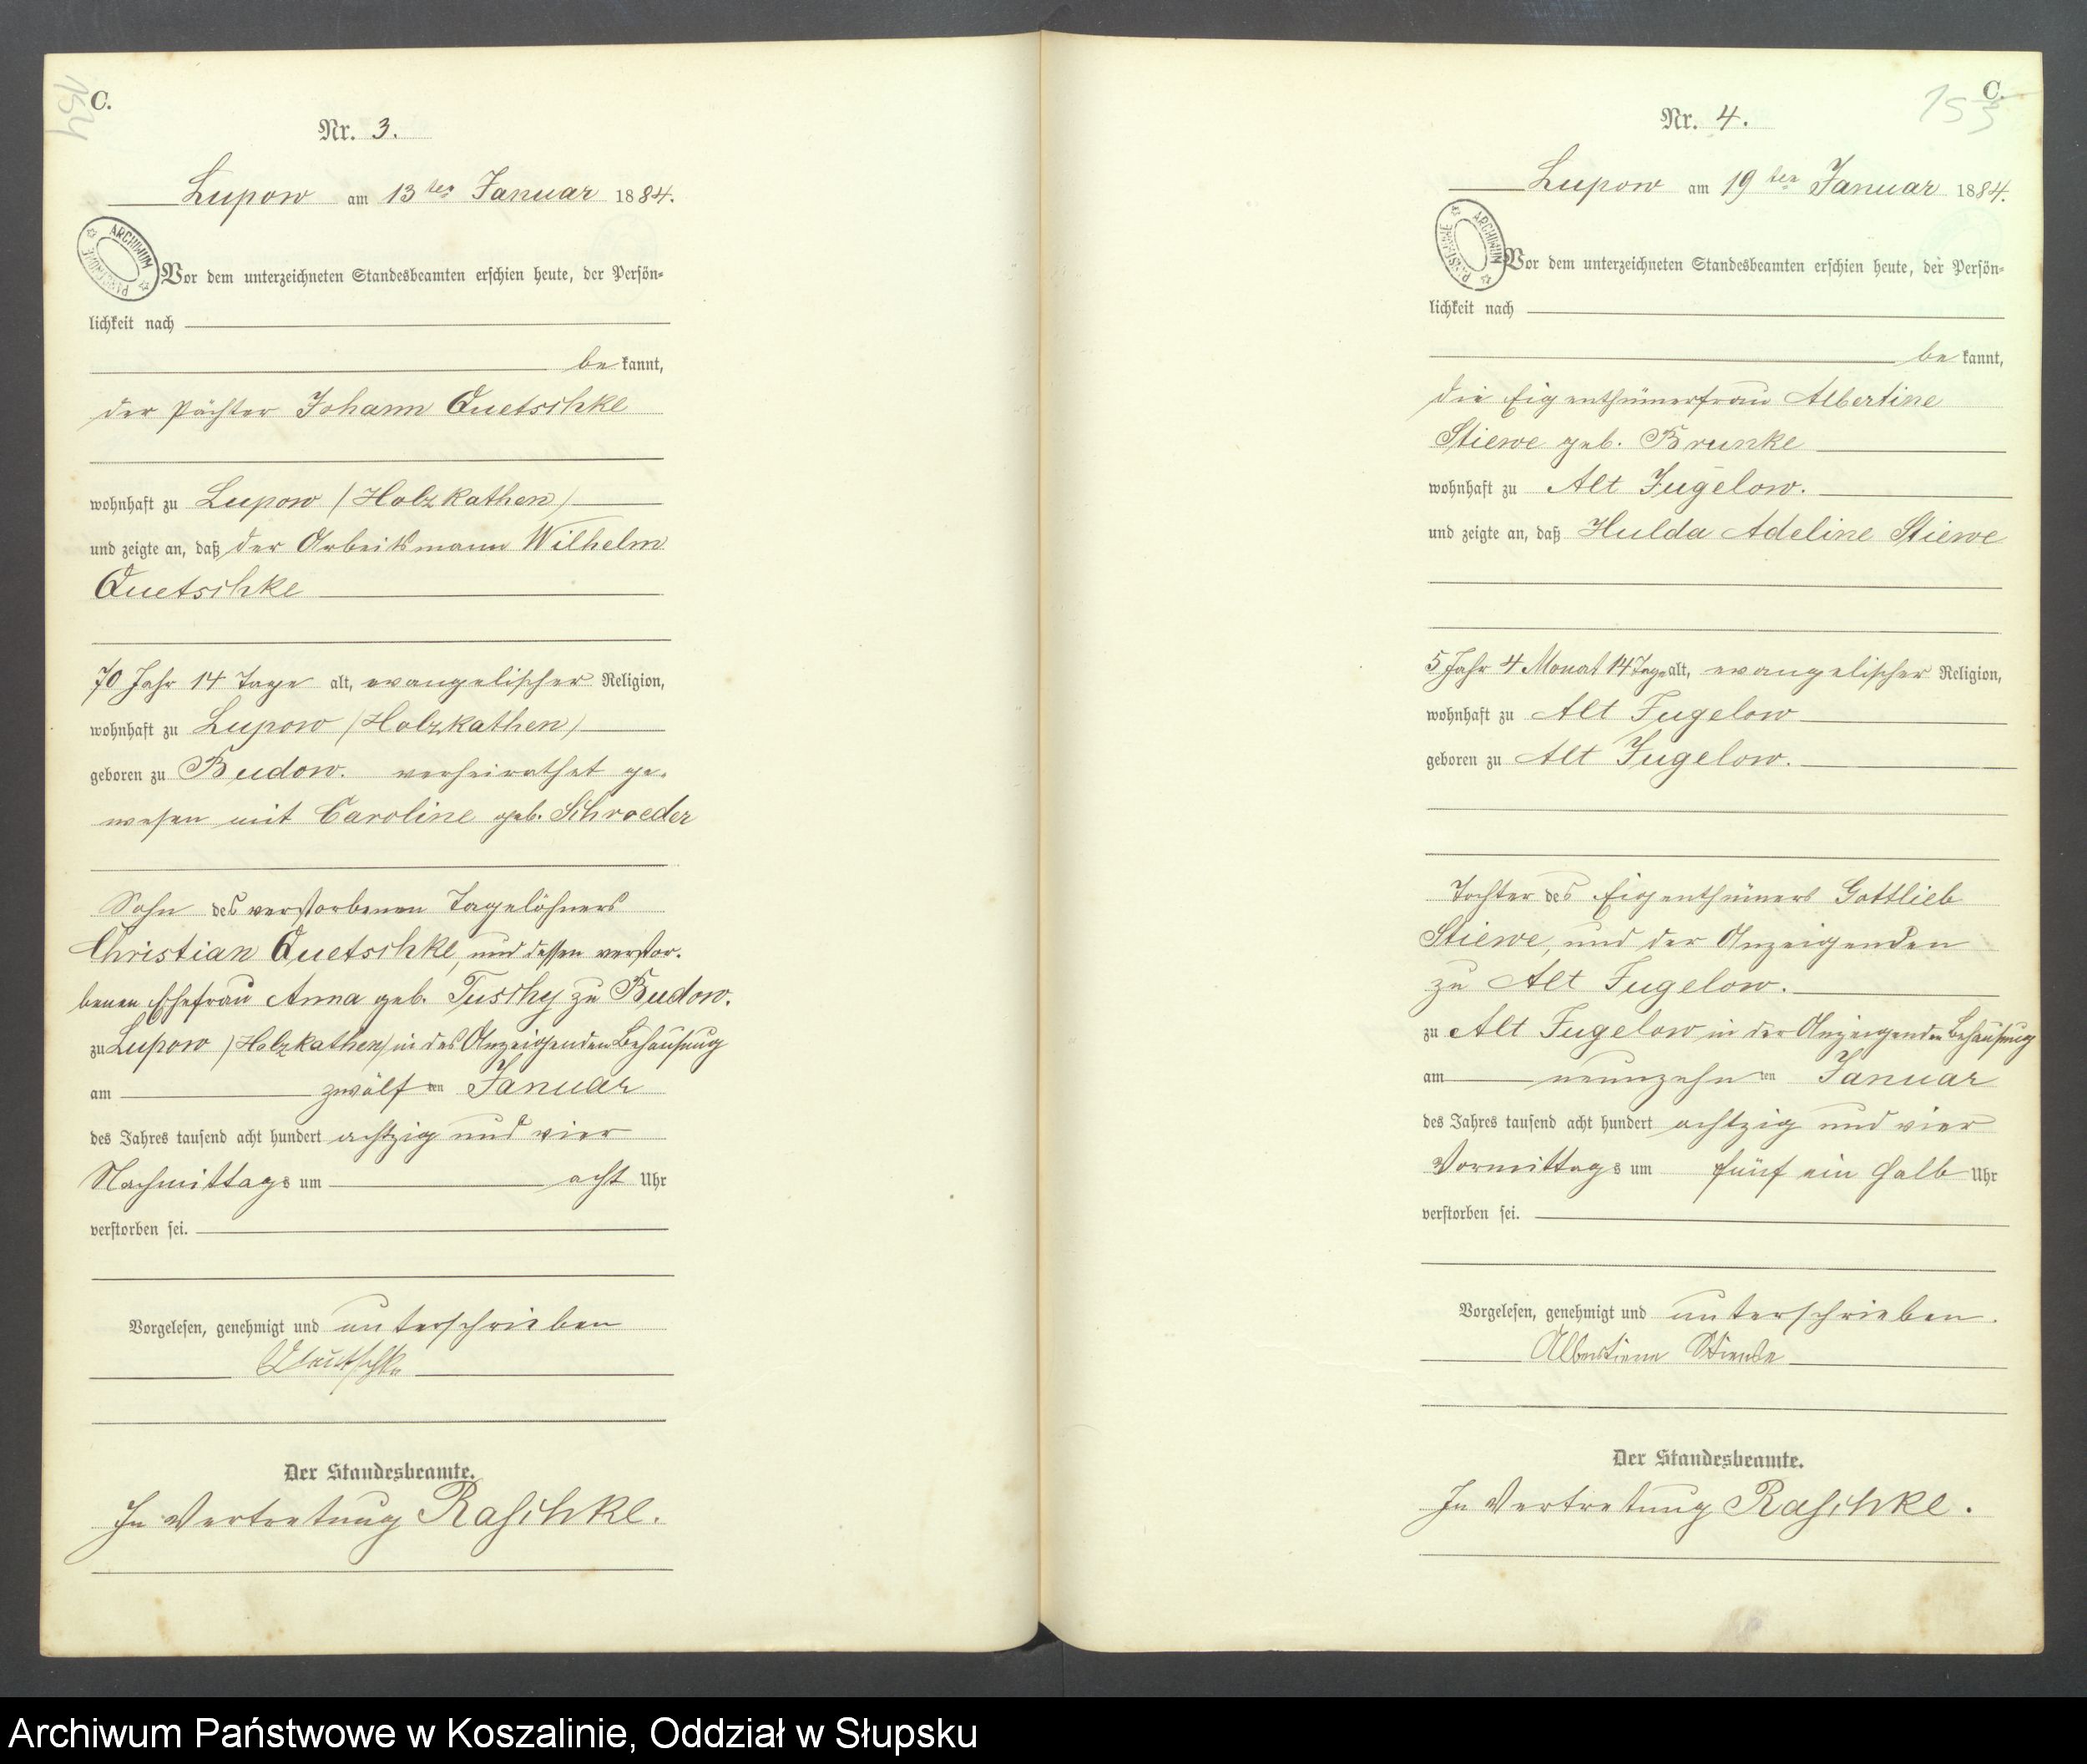 154
C.
Nr. 3.
Lupow am 13ten Januar 1884.
ARCHIWUM PAŃSTWOWE
Vor dem unterzeichneten Standesbeamten erschien heute, der Persön-
lichkeit nach
be kannt,
der Pächter Johann Quetschke
wohnhaft zu Lupow (Holzkathen)
und zeigte an, daß der Arbeitsmann Wilhelm
Quetschke
70 Jahr 14 Tage alt, evangelischer Religion,
wohnhaft zu Lupow (Holzkathen)
geboren zu Budow. verheirathet ge-
wesen mit Caroline geb. Schroeder
Sohn des verstorbenen Tagelöhners
Christian Quetschke, und dessen verstor-
benen Ehefrau Anna geb. Tuschy zu Budow.
zu Lupow (Holzkathen) in des Anzeigenden Behausung
am zwölften Januar
des Jahres tausend acht hundert achtzig und vier
Nachmittags um acht Uhr
verstorben sei.
Vorgelesen, genehmigt und unterschrieben
Der Standesbeamte.
In Vertretung Raschke.
C.
Nr. 4.
Lupow am 19ten Januar 1884.
ARCHIWUM PAŃSTWOWE
Vor dem unterzeichneten Standesbeamten erschien heute, der Persön-
lichkeit nach
be kannt,
die Eigenthümerfrau Albertine
Stiewe geb. Brunke
wohnhaft zu Alt Jugelow.
und zeigte an, daß Hulda Adeline Stiewe
5 Jahr 4 Monat 14 Tage alt, evangelischer Religion,
wohnhaft zu Alt Jugelow
geboren zu Alt Jugelow.
Tochter des Eigenthümers Gottlieb
Stiewe, und der Anzeigenden
zu Alt Jugelow.
zu Alt Jugelow in der Anzeigenden Behausung
am neunzehnten Januar
des Jahres tausend acht hundert achtzig und vier
Vormittags um fünf ein halb Uhr
verstorben sei.
Vorgelesen, genehmigt und unterschrieben.
Albertiene
Der Standesbeamte.
In Vertretung Raschke.
Archiwum Państwowe w Koszalinie, Oddział w Słupsku